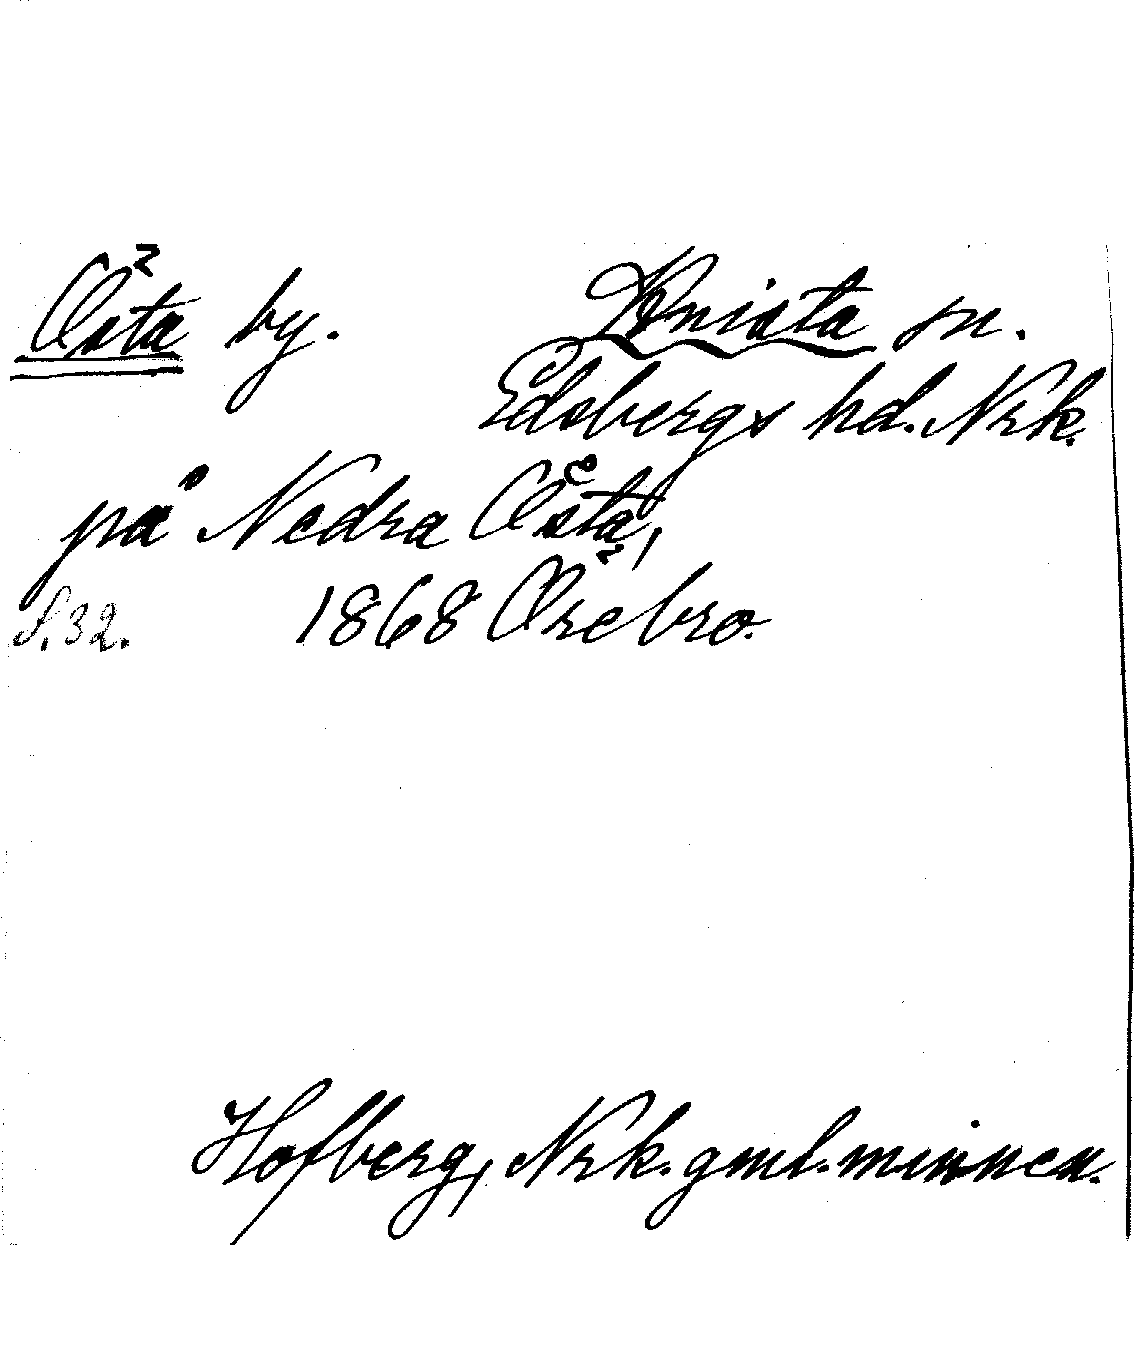 Östa by. Knista sn.
Edsbergs hd. Nrk.
på Nedra Östa,
S. 32. 1868 Örebro.
Hofberg, Nrk. gml. minnen.